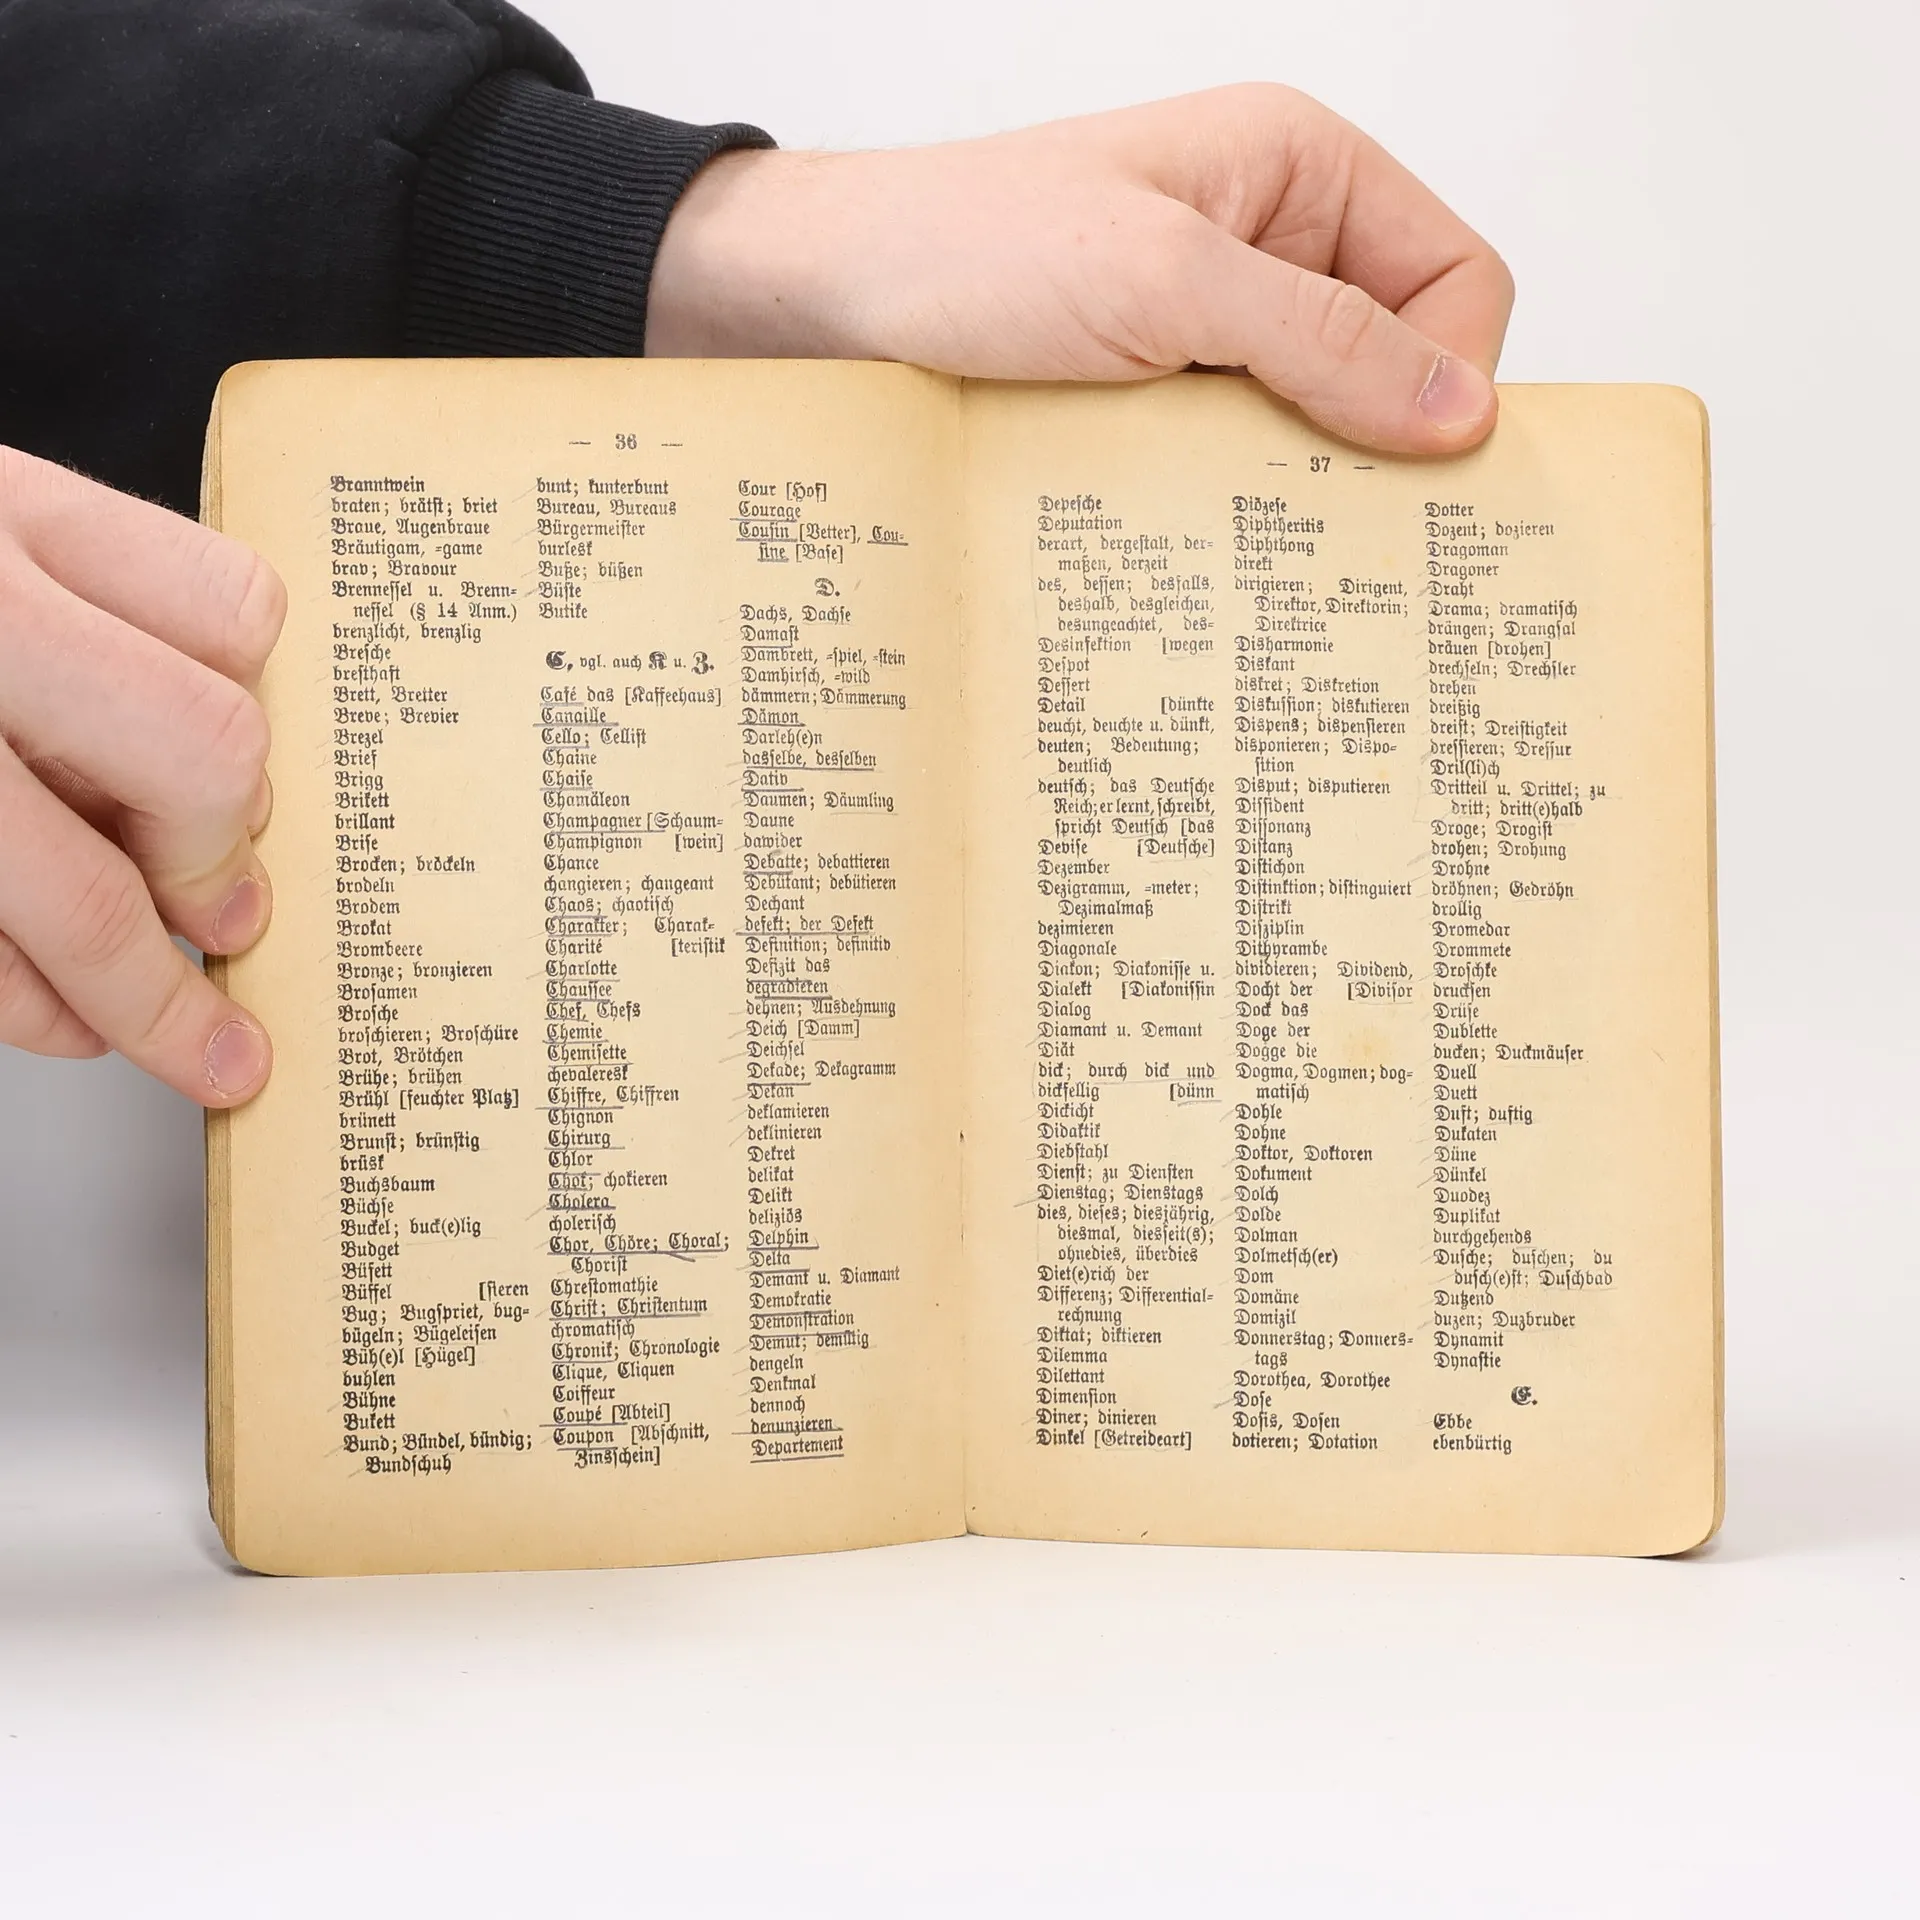 — 36 —
Branntwein
braten; brätst; briet
Braue, Augenbraue
Bräutigam, =game
brav; Bravour
Brennessel u. Brenn=
nessel (§ 14 Anm.)
brenzlicht, brenzlig
Bresche
bresthaft
Brett, Bretter
Breve; Brevier
Brezel
Brief
Brigg
Brikett
brillant
Brise
Brocken; bröckeln
brodeln
Brodem
Brokat
Brombeere
Bronze; bronzieren
Brosamen
Brosche
broschieren; Broschüre
Brot, Brötchen
Brühe; brühen
Brühl [feuchter Platz]
brünett
Brunst; brünstig
brüsk
Buchsbaum
Büchse
Buckel; buck(e)lig
Budget
Büfett
Büffel [sieren
Bug; Bugspriet, bug=
bügeln; Bügeleisen
Büh(e)l [Hügel]
buhlen
Bühne
Bukett
Bund; Bündel, bündig;
Bundschuh
bunt; kunterbunt
Bureau, Bureaus
Bürgermeister
burlesk
Buße; büßen
Büste
Butike
C, vgl. auch K u. Z.
Café das [Kaffeehaus]
Canaille
Cello; Cellist
Chaine
Chaise
Chamäleon
Champagner [Schaum=
Champignon [wein]
Chance
changieren; changeant
Chaos; chaotisch
Charakter; Charak=
Charité [teristik
Charlotte
Chaussee
Chef, Chefs
Chemie
Chemisette
chevaleresk
Chiffre, Chiffren
Chignon
Chirurg
Chlor
Chok; chokieren
Cholera
cholerisch
Chor, Chöre; Choral;
Chorist
Chrestomathie
Christ; Christentum
chromatisch
Chronik; Chronologie
Clique, Cliquen
Coiffeur
Coupé [Abteil]
Coupon [Abschnitt,
Zinsschein]
Cour [Hof]
Courage
Cousin [Vetter], Cou=
sine [Base]
D.
Dachs, Dachse
Damast
Dambrett, =spiel, =stein
Damhirsch, =wild
dämmern; Dämmerung
Dämon
Darleh(e)n
dasselbe, desselben
Dativ
Daumen; Däumling
Daune
dawider
Debatte; debattieren
Debütant; debütieren
Dechant
defekt; der Defekt
Definition; definitiv
Defizit das
degradieren
dehnen; Ausdehnung
Deich [Damm]
Deichsel
Dekade; Dekagramm
Dekan
deklamieren
deklinieren
Dekret
delikat
Delikt
deliziös
Delphin
Delta
Demant u. Diamant
Demokratie
Demonstration
Demut; demütig
dengeln
Denkmal
dennoch
denunzieren
Departement
— 37 —
Depesche
Deputation
derart, dergestalt, der=
maßen, derzeit
des, dessen; desfalls,
deshalb, desgleichen,
desungeachtet, des=
Desinfektion [wegen
Despot
Dessert
Detail [dünkte
deucht, deuchte u. dünkt,
deuten; Bedeutung;
deutlich
deutsch; das Deutsche
Reich; er lernt, schreibt,
spricht Deutsch [das
Devise [Deutsche]
Dezember
Dezigramm, =meter;
Dezimalmaß
dezimieren
Diagonale
Diakon; Diakonisse u.
Dialekt [Diakonissin
Dialog
Diamant u. Demant
Diät
dick; durch dick und
dickfellig [dünn
Dickicht
Didaktik
Diebstahl
Dienst; zu Diensten
Dienstag; Dienstags
dies, dieses; diesjährig,
diesmal, diesseit(s);
ohnedies, überdies
Diet(e)rich der
Differenz; Differential=
rechnung
Diktat; diktieren
Dilemma
Dilettant
Dimension
Diner; dinieren
Dinkel [Getreideart]
Diözese
Diphtheritis
Diphthong
direkt
dirigieren; Dirigent,
Direktor, Direktorin;
Direktrice
Disharmonie
Diskant
diskret; Diskretion
Diskussion; diskutieren
Dispens; dispensieren
disponieren; Dispo=
sition
Disput; disputieren
Dissident
Dissonanz
Distanz
Distichon
Distinktion; distinguiert
Distrikt
Disziplin
Dithyrambe
dividieren; Dividend,
Docht der [Divisor
Dock das
Doge der
Dogge die
Dogma, Dogmen; dog=
matisch
Dohle
Dohne
Doktor, Doktoren
Dokument
Dolch
Dolde
Dolman
Dolmetsch(er)
Dom
Domäne
Domizil
Donnerstag; Donners=
tags
Dorothea, Dorothee
Dose
Dosis, Dosen
dotieren; Dotation
Dotter
Dozent; dozieren
Dragoman
Dragoner
Draht
Drama; dramatisch
drängen; Drangsal
dräuen [drohen]
drechseln; Drechsler
drehen
dreißig
dreist; Dreistigkeit
dressieren; Dressur
Dril(li)ch
Dritteil u. Drittel; zu
dritt; dritt(e)halb
Droge; Drogist
drohen; Drohung
Drohne
dröhnen; Gedröhn
drollig
Dromedar
Drommete
Droschke
drucksen
Drüse
Dublette
ducken; Duckmäuser
Duell
Duett
Duft; duftig
Dukaten
Düne
Dünkel
Duodez
Duplikat
durchgehends
Dusche; duschen; du
dusch(e)st; Duschbad
Dutzend
duzen; Duzbruder
Dynamit
Dynastie
E.
Ebbe
ebenbürtig